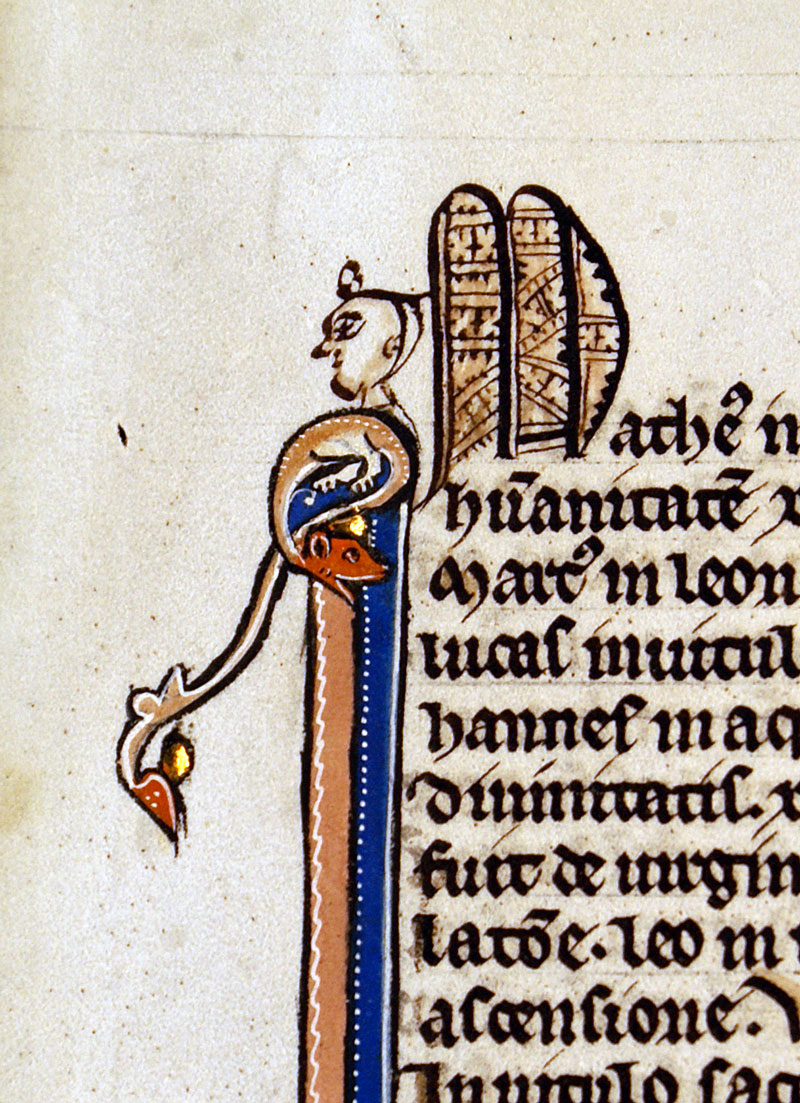 Mathe᷒ in
hūanitatē x
Marc᷒ in leon
lucas in uitul
hannes in aq
diuinitatis. x
fuit de uirgin
latōe. leo in
ascensione.
In uitulo sac